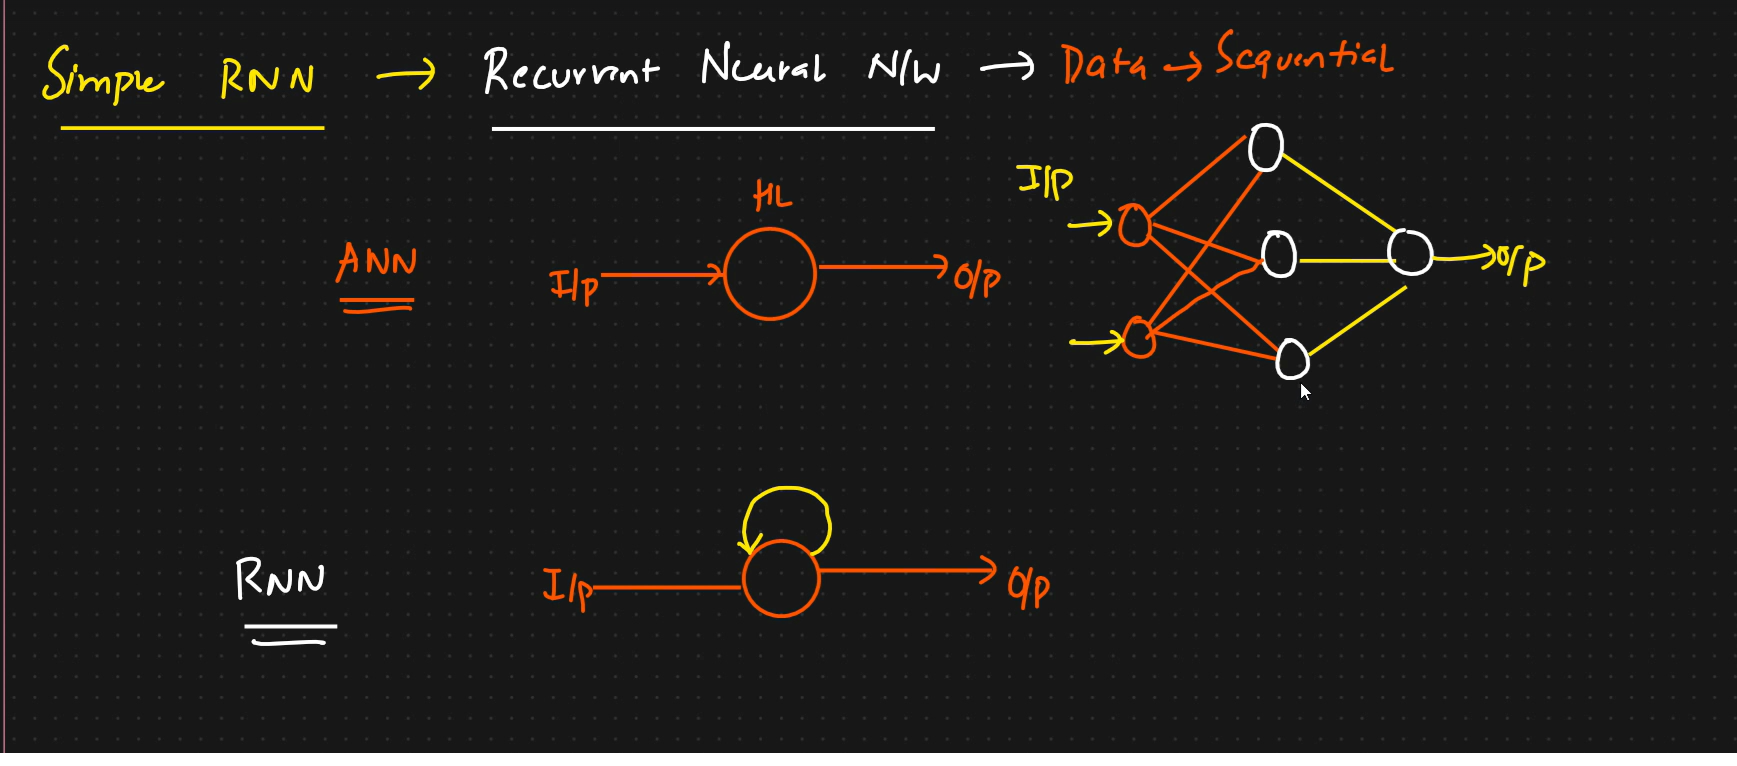 Simple RNN → Recurrent Neural N/W → Data → Sequential
I/p
HL
ANN
I/p
O/p
O/p
RNN
I/p
O/p